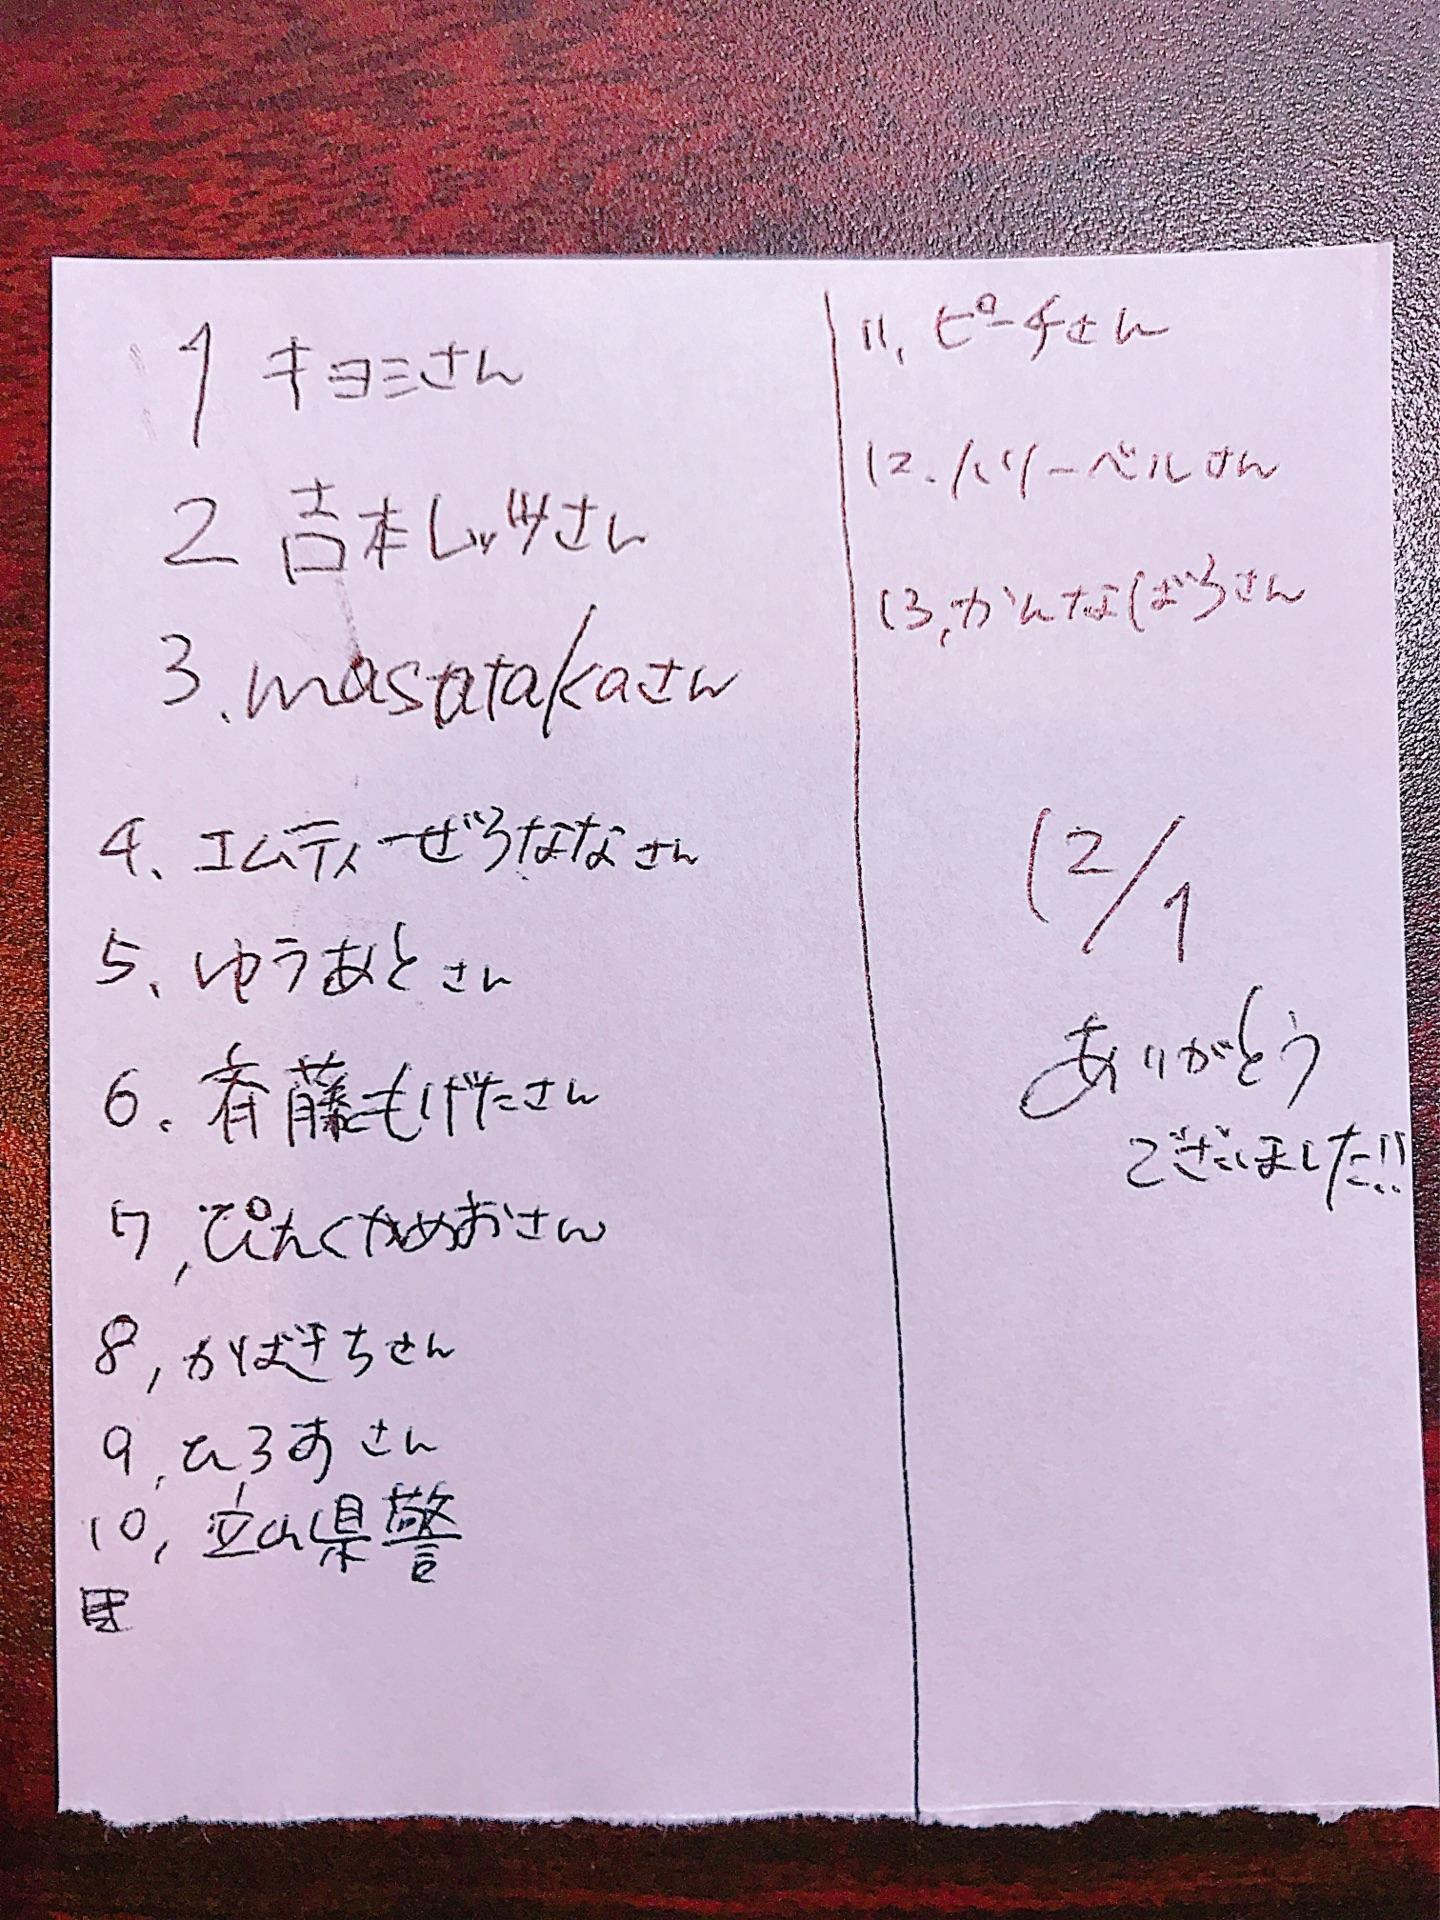 1 キヨミさん
2 吉本レッツさん
3.masatakaさん
4、エムティーぜろななさん
5、ゆうあとさん
6、斉藤もげたさん
7,ぴんくかめおさん
8,かばきちさん
9,ひろすさん
10,立山県警
11,ピーチさん
12.ハリーベルさん
13,かんなばろさん
12/1
ありがとう
ございました!!